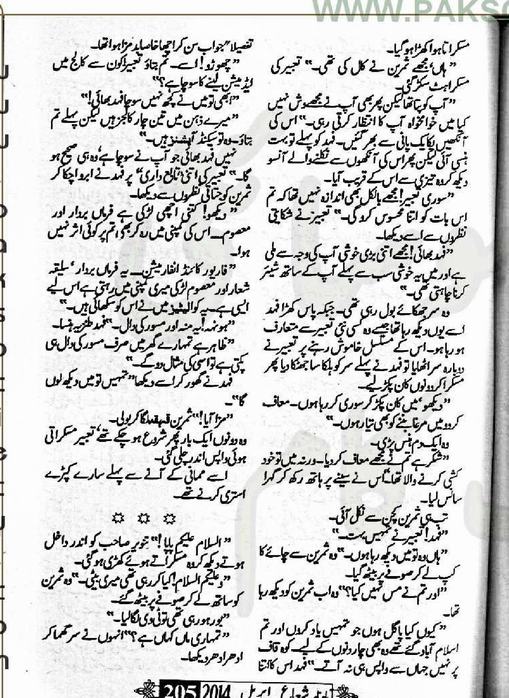 WWW.PAKSO
مسکراتا ہوا کھڑا ہو گیا۔
”ہاں، مجھے ثمرین نے کال کی تھی۔“ تعبیر کی
مسکراہٹ سکڑ گئی۔
”آپ کو پتا تھا لیکن پھر بھی آپ نے مجھے وش نہیں
کیا میں خوامخواہ آپ کا انتظار کرتی رہی۔“ اس کی
آنکھیں یکایک پانی سے بھر گئیں۔ فہد کو پہلے تو بہت
ہنسی آئی لیکن پھر اس کی آنکھوں سے نکلنے والے آنسو
دیکھ کر وہ تیزی سے اس کے قریب آیا۔
”سوری تعبیر! مجھے بالکل بھی اندازہ نہیں تھا کہ تم
اس بات کو اتنا محسوس کرو گی۔“ تعبیر نے شکایتی
نظروں سے اسے دیکھا۔
”فہد بھائی! مجھے اتنی بڑی خوشی آپ کی وجہ سے ملی
ہے اور میں یہ خوشی سب سے پہلے آپ کے ساتھ شیئر
کرنا چاہتی تھی۔“
وہ سر جھکائے بول رہی تھی۔ جبکہ پاس کھڑا فہد
اسے یوں دیکھ رہا تھا جیسے وہ کسی نئی تعبیر سے متعارف
ہو رہا ہو۔ اس کے مسلسل خاموش رہنے پر تعبیر نے
دوبارہ سر اٹھایا تو فہد نے پہلے سر کو ہلکا سا جھٹکا دیا پھر
مسکرا کر دونوں کان پکڑ لیے۔
”دیکھو! میں کان پکڑ کر سوری کر رہا ہوں۔ معاف
کر دو میں مرغا بننے کو بھی تیار ہوں۔“
وہ ایک دم ہنس پڑی۔
”شکر ہے تم نے مجھے معاف کر دیا۔ ورنہ میں تو خود
کشی کرنے والا تھا۔“ اس نے سینے پر ہاتھ رکھ کر گہرا
سانس لیا۔
تب ہی ثمرین کچن سے نکل آئی۔
”فہد! تعبیر نے تمہیں بہت
”ہاں وہ تو میں دیکھ رہا ہوں۔“ وہ ثمرین سے چائے کا
کپ لے کر صوفے پر بیٹھ گیا۔
”اور تم نے مس نہیں کیا؟“ وہ اب ثمرین کو دیکھ رہا
تھا۔
”کیوں کیا پاگل ہوں جو تمہیں یاد کروں اور تم
اسلام آباد گئے تھے وہ بھی چار دنوں کے لیے کوہ قاف
پر نہیں جہاں سے واپس ہی نہ آتے۔“ فہد اس کا اتنا
تفصیلاً جواب سن کر اچھا خاصا بد مزا ہوا تھا۔
”چھوڑو اسے۔ تم بتاؤ تعبیر! کون سے کالج میں
ایڈمیشن لینے کا سوچا ہے؟“
”ابھی تو میں نے کچھ نہیں سوچا فہد بھائی!“
”میرے ذہن میں تین چار کالجز ہیں لیکن پہلے تم
بتاؤ۔ وہ تو سیکنڈ آپشنز ہیں۔“
نہیں فہد بھائی جو آپ نے سوچا ہے وہ ہی صحیح ہو
گا۔“ تعبیر کی اتنی ’تابع داری‘ پر فہد نے ابرو اچکا کر
ثمرین کو جتاتی نظروں سے دیکھا۔
”دیکھو! کتنی اچھی لڑکی ہے فرماں بردار اور
معصوم۔ اس کی کمپنی میں رہ کر بھی تم پر کوئی اثر نہیں
ہوا۔
”فار یور کائنڈ انفارمیشن۔ یہ فرماں بردار، سلیقہ
شعار اور معصوم لڑکی میری کمپنی میں رہتی ہے اس لیے
ایسی ہے۔ یہ کوالٹیز میں نے اس کو سکھائی ہیں۔“
”ہونہہ! یہ منہ اور مسور کی دال۔“ فہد طنزیہ ہنسا۔
”ظاہر ہے تمہارے گھر میں صرف مسور کی دال ہی
پکتی ہے تو اسی کی مثال دو گے۔“
فہد نے گھور کر اسے دیکھا ”تمہیں تو میں دیکھ لوں
گا۔“
”مزا آیا!“ ثمرین قہقہہ لگا کر بولی۔
وہ دونوں ایک بار پھر شروع ہو چکے تھے تعبیر مسکراتی
ہوئی واپس اندر چلی گئی۔
اسے ممانی کے آنے سے پہلے سارے کپڑے
استری کرنے تھے۔
☆ ☆ ☆
”السلام علیکم پاپا!“ تنویر صاحب کو اندر داخل
ہوتے دیکھ کر وہ مسکراتے ہوئے کھڑی ہو گئی۔
”وعلیکم السلام! کیا کر رہی تھی میری بیٹی۔“ وہ ثمرین
کو ساتھ لے کر صوفے پر بیٹھ گئے۔
”بور ہو رہی تھی تو ٹی وی لگا لیا۔“
”تمہاری ماں کہاں ہے؟“ انہوں نے سر گھما کر
ادھر ادھر دیکھا۔
شعاع اپریل 2014 205